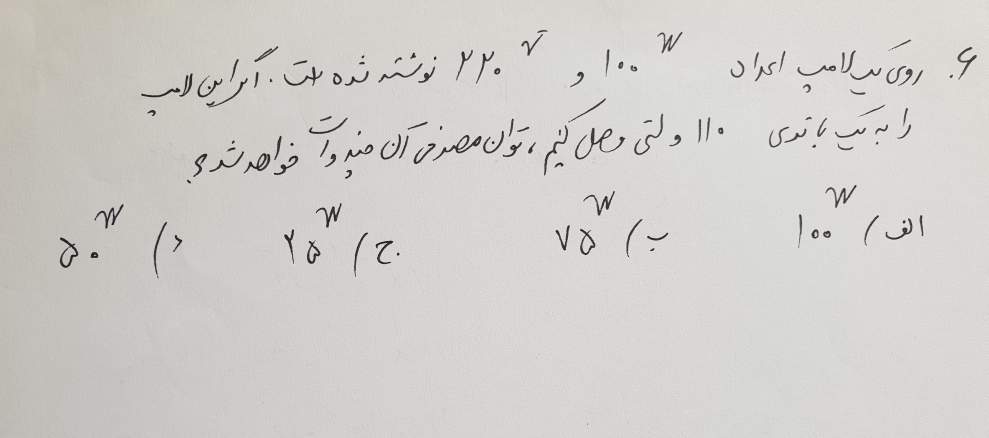 ۶. روی یک لامپ اعداد ۱۰۰W و ۲۲۰V نوشته شده است. اگر این لامپ
را به یک باتری ۱۱۰ ولتی وصل کنیم، توان مصرفی آن چند وات خواهد شد؟
الف) ۱۰۰W ب) ۷۵W ج) ۲۵W د) ۵۰W